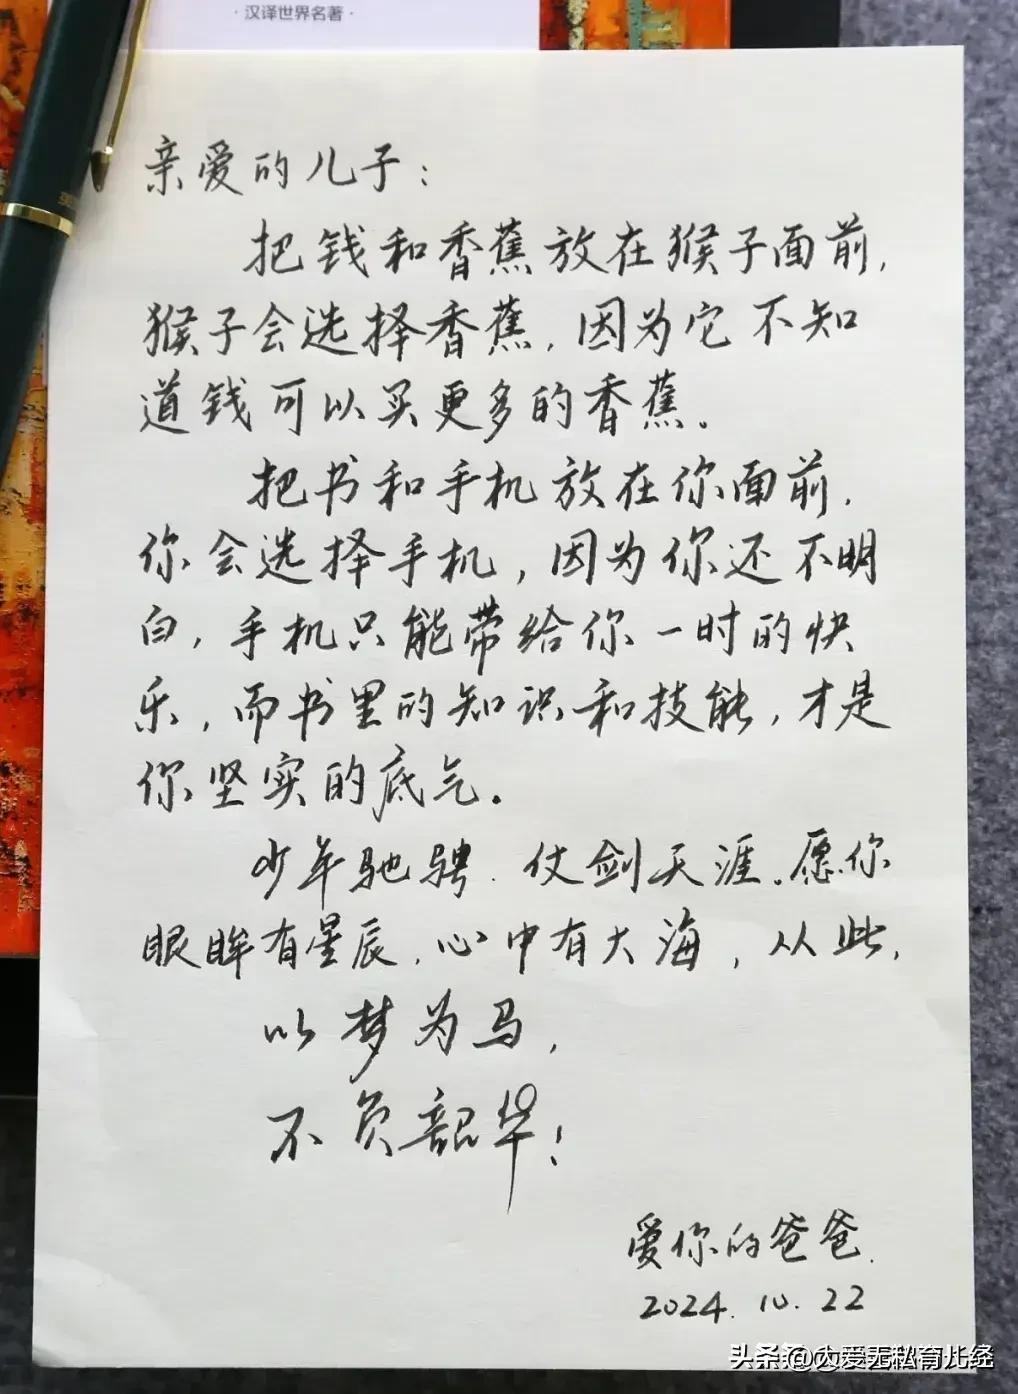 ·汉译世界名著·
亲爱的儿子：
把钱和香蕉放在猴子面前，
猴子会选择香蕉，因为它不知
道钱可以买更多的香蕉。
把书和手机放在你面前，
你会选择手机，因为你还不明
白，手机只能带给你一时的快
乐，而书里的知识和技能，才是
你坚实的底气。
少年驰骋．仗剑天涯．愿你
眼眸有星辰．心中有大海，从此，
以梦为马，
不负韶华！
爱你的爸爸．
2024.10.22
头条 @大爱无私育儿经